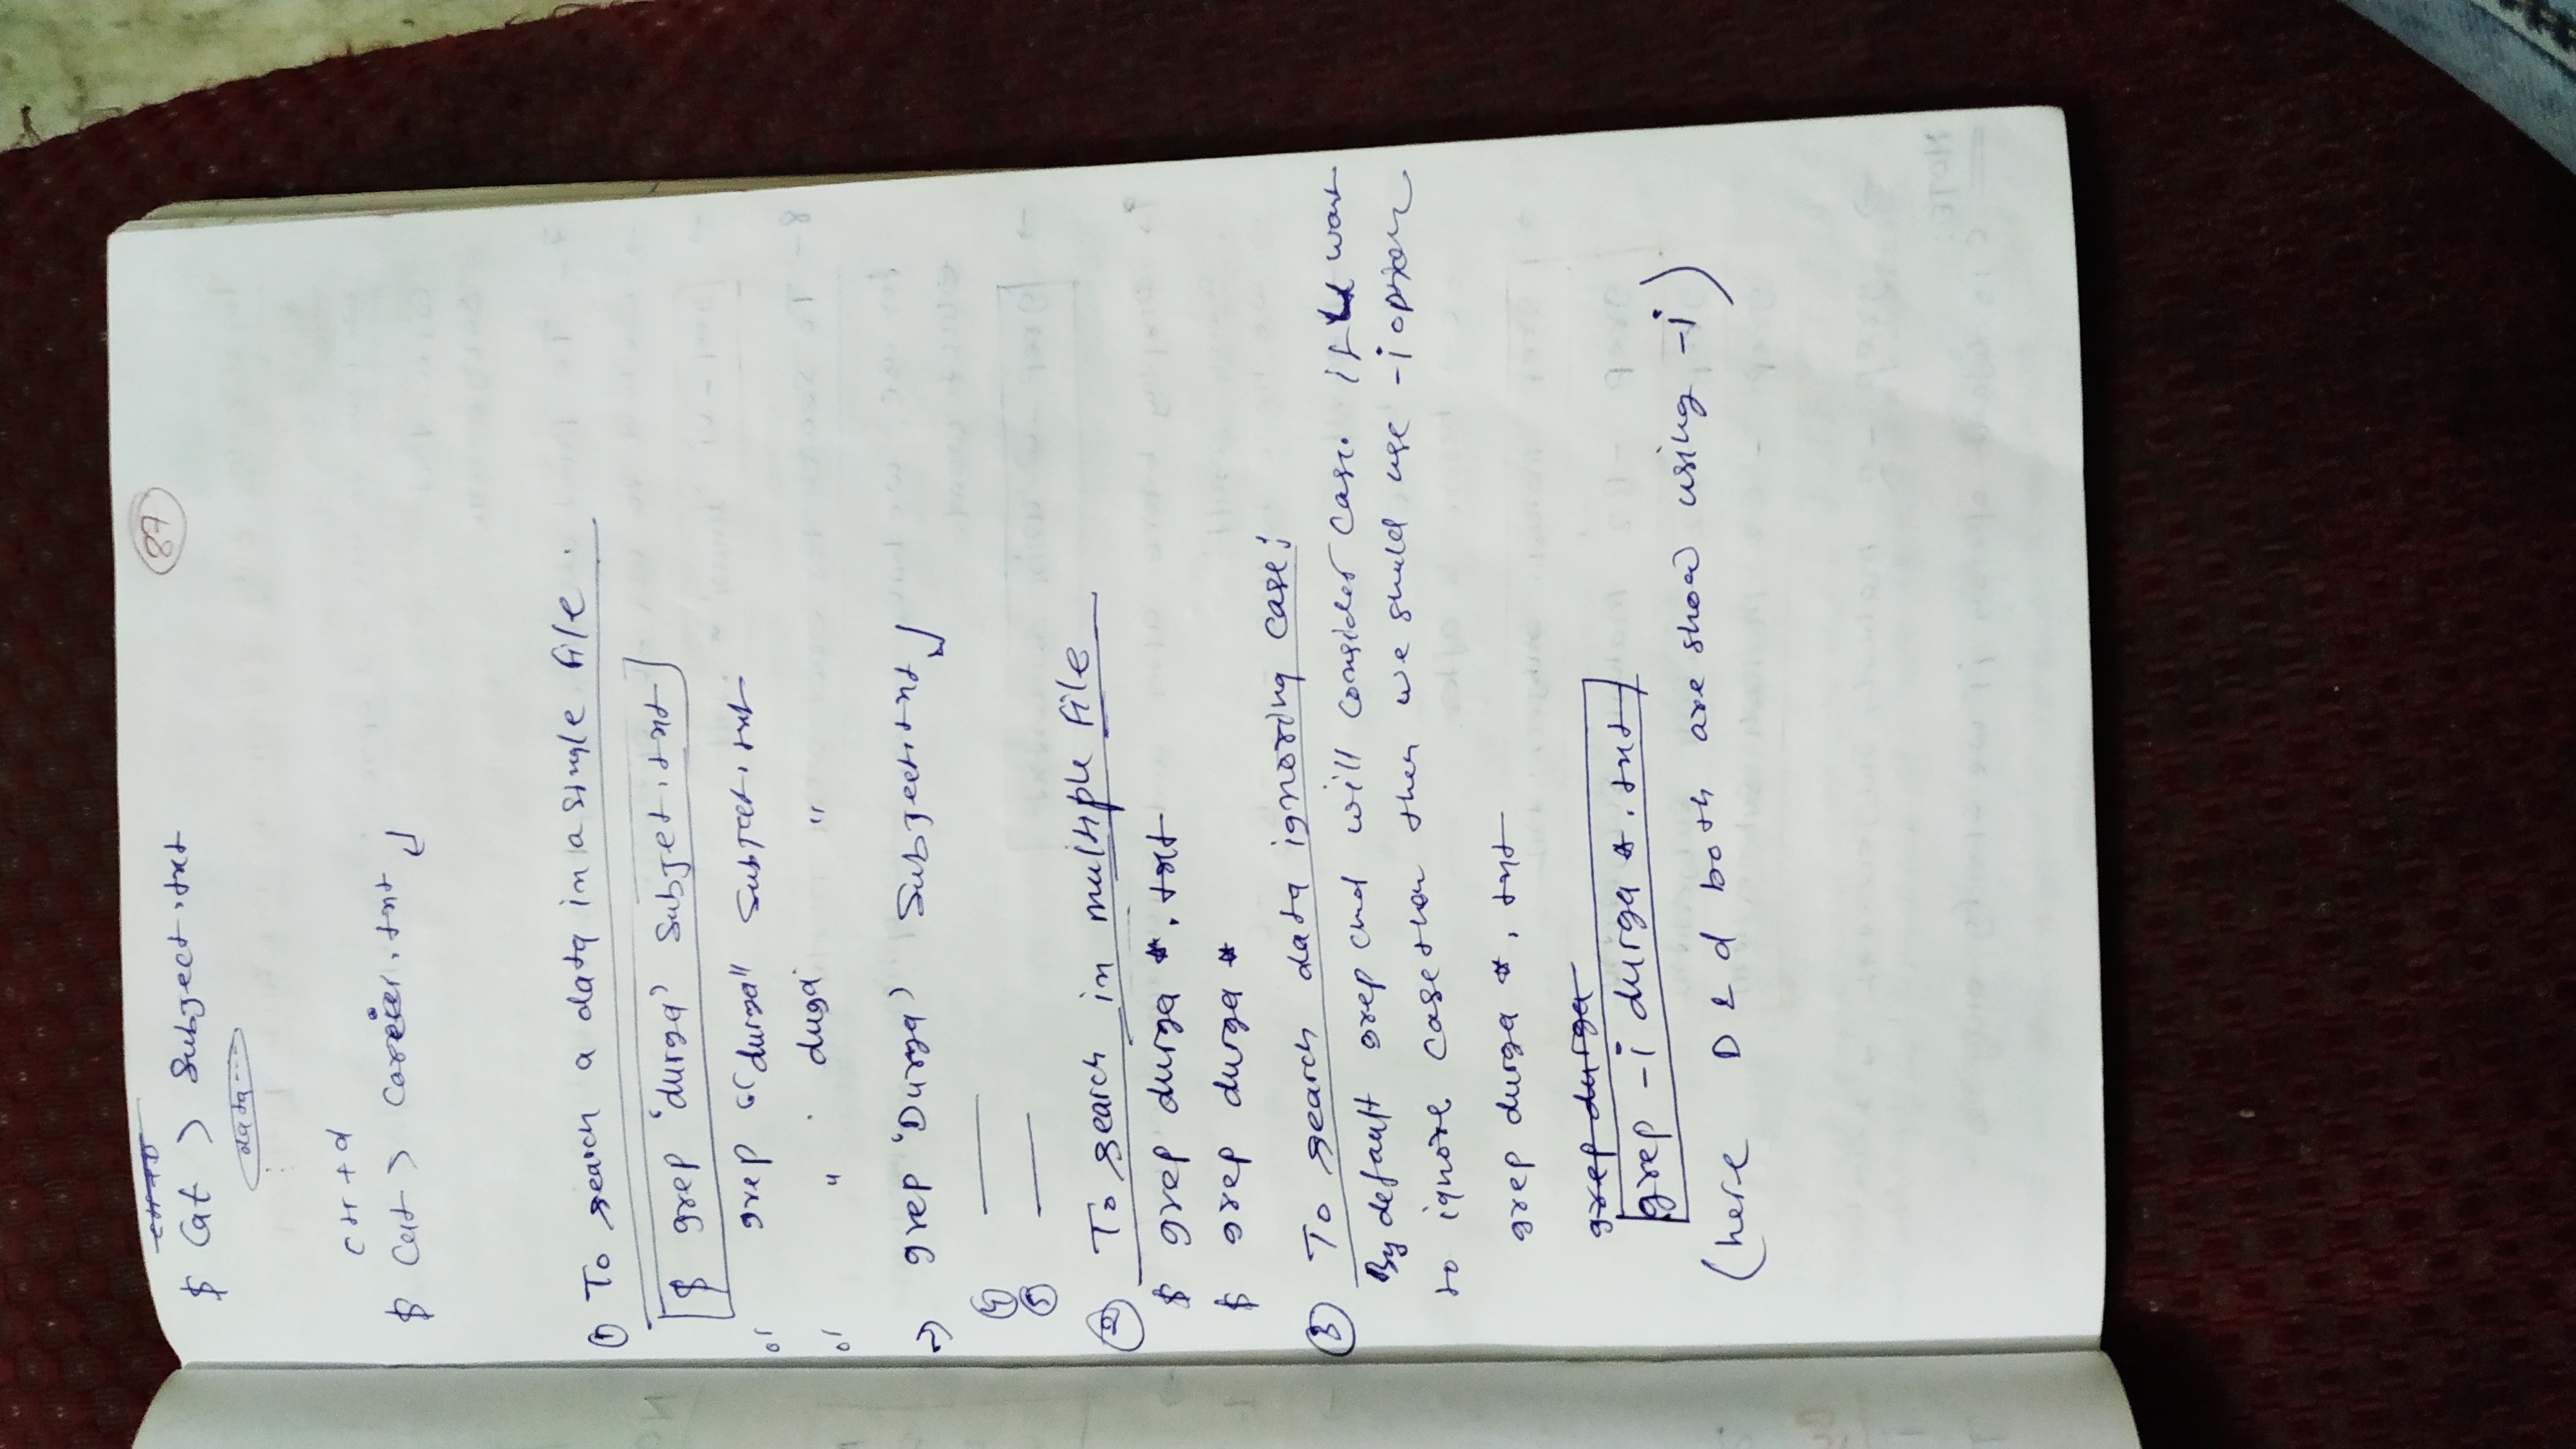 37
ctr + D
$ Cat > Subject.txt
data...
ctr + d
$ Cat > Carrier.txt ↵
① To search a data in a single file.
$ grep 'durga' Subjet.txt
or grep "durga" Subject.txt
or " duga "
⇒ grep 'Durga' Subject.txt ↵
④ ——
⑤ ——
② To search in multiple file
$ grep durga *.txt
$ grep durga *
③ To search data ignoring case:
By default grep cmd will consider case. if u want
to ignore case then we should use -i option
grep durga *.txt
grep durga
grep -i durga *.txt
(here D & d both are show using -i)